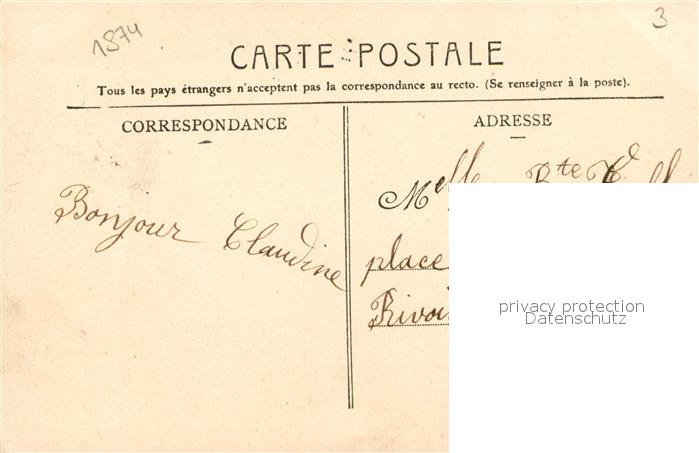 1874
3
CARTE POSTALE
Tous les pays étrangers n'acceptent pas la correspondance au recto. (Se renseigner à la poste).
CORRESPONDANCE
ADRESSE
Bonjour Claudine
Melle
place
privacy protection
Datenschutz